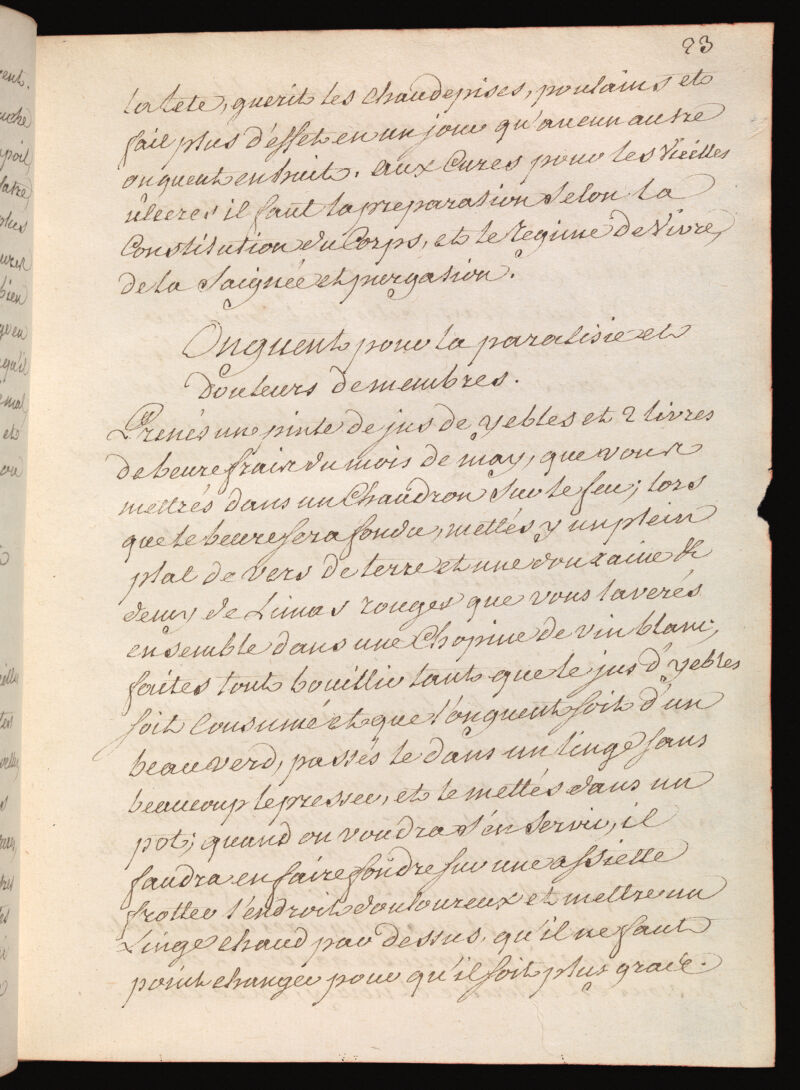 23
la tete, guerit les chaudepisses, poulains et
fait plus d'effet en un jour qu'aucun autre
onguent en huit. aux Cures pour les Vieilles
ulceres il faut la preparation selon la
Constitution du Corps, et le Regime de Vivre,
de la Saignée et purgation.
Onguent pour la paralisie et
Douleurs de membres.
Prenés une pinte de jus de yebles et 2 livres
de beure frais du mois de may, que vous
mettrés dans un Chaudron sur le feu; lors
que le beure sera fondu, mettés y un plein
plat de vers de terre et une douzaine &
demy de Limas rouges que vous laverés
ensemble dans une Chopine de vin blanc,
faites tout bouillir tant que le jus d'yebles
soit Consumé et que l'onguent soit d'un
beau verd, passés le dans un linge sans
beaucoup le presser, et le mettés dans un
pot; quand on voudra s'en servir, il
faudra en faire fondre sur une assiette
frotter l'endroit douloureux et mettre un
Linge chaud par dessus, qu'il ne faut
point changer pour qu'il soit plus